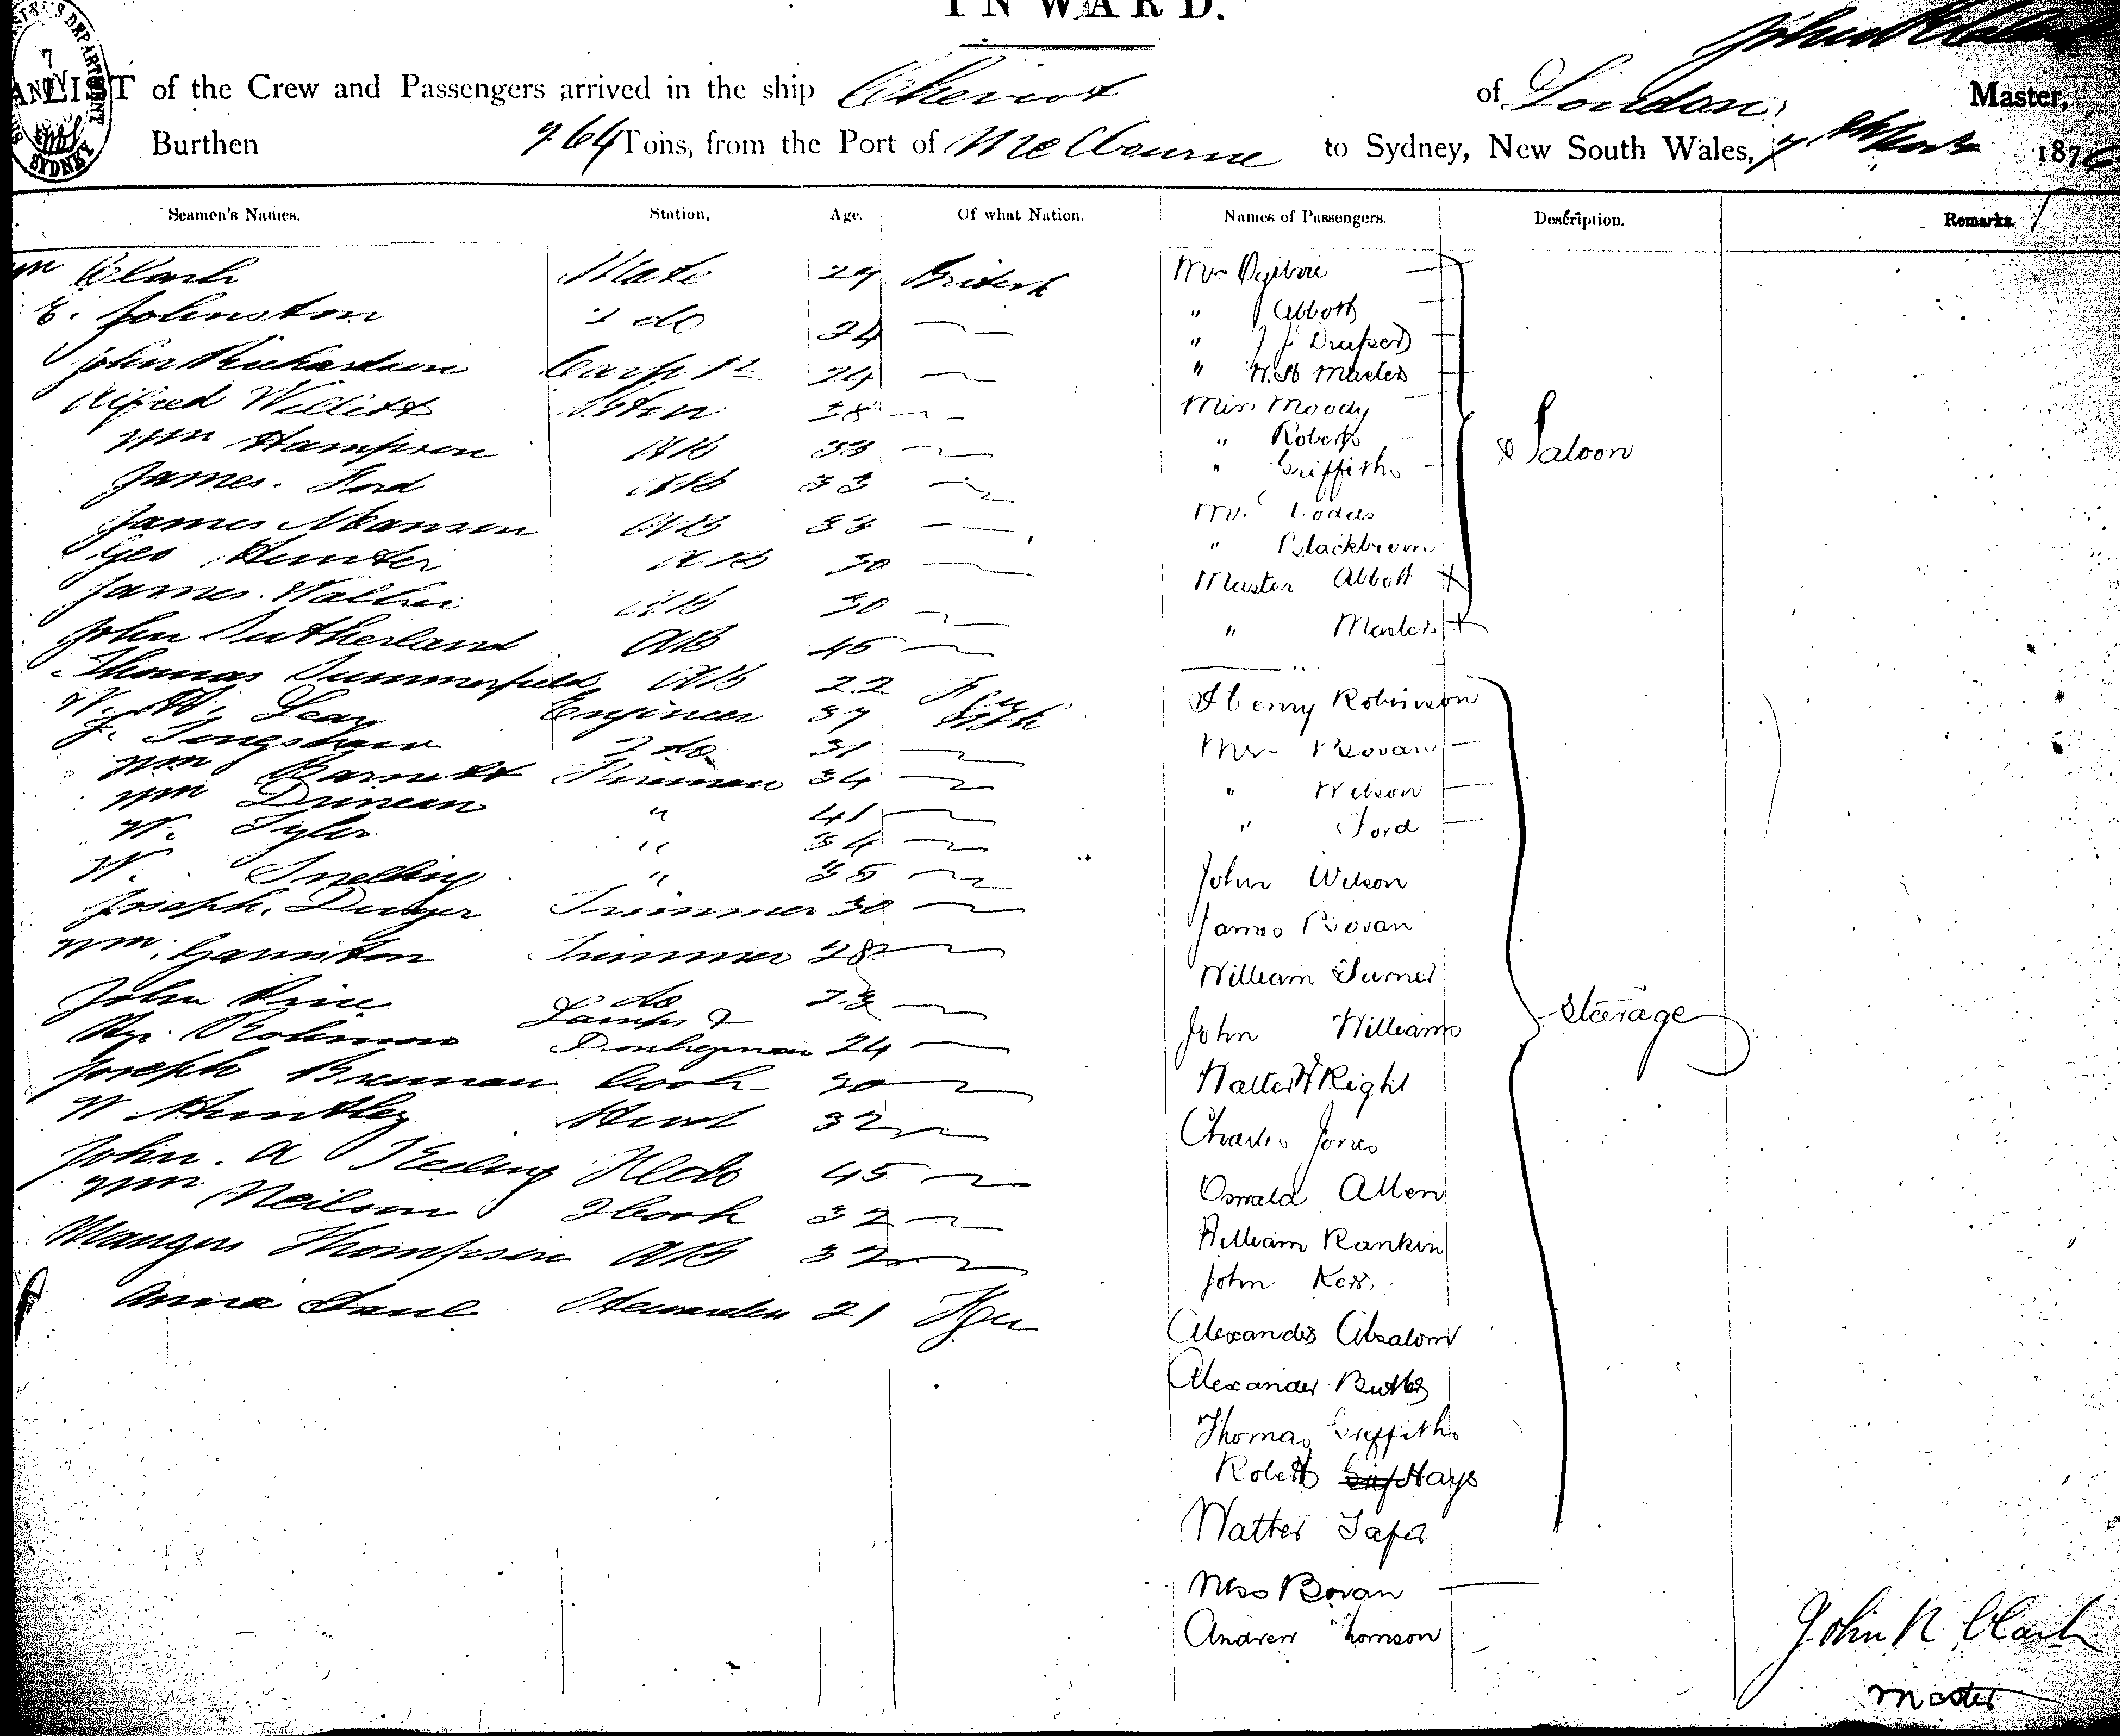 INWARD.
LIST of the Crew and Passengers arrived in the ship Cheviot of London, Master,
Burthen 764 Tons, from the Port of Melbourne to Sydney, New South Wales, 7 187
Seamen's Names. Station, Age. Of what Nation. Names of Passengers. Description. Remarks.
Wm Clark Mate 29 British
E. Johnston 2 do 24
John Richardson Carptr 24
Alfred Willett 38
Wm Hampson AB 33
James. Ford AB 33
James Manson AB 33
Geo Hunter AB 30
James. AB 30
John Sutherland AB 45
Thomas Summerfield AB 22
W. H. Leay Engineer 37
J. 2 do 31
Wm Barnett Fireman 34
Wm Duncan " 41
W. Tyler " 34
W. Snelling " 35
Joseph. Dwyer Trimmer 30
Wm. Trimmer 28
John do 23
Robinson Lamps & Donkeyman 24
Joseph Brennan Cook 30
W Huntley 32
John. A Keeling 45
Wm Neilson 2 Cook 32
Mangus Thompson AB 32
Anna Stewardess 21
Mrs Ogilvie
" Abbott
" J J Draper
" W. H Masters
Miss Moody
" Roberts
" Griffiths
Mr
" Blackburn
Master Abbott
" Masters
Saloon
Henry Robinson
Mrs Bovan
" Wilson
" Ford
John Wilson
James Bovan
William Turner
John Williams
Walter Wright
Charles Jones
Oswald Allen
William Rankin
John Kerr
Alexander Absalom
Alexander Butler
Thomas Griffiths
Robert Hays
Walter
Miss Bovan
Andrew Thomson
Steerage
John R Clark
Master